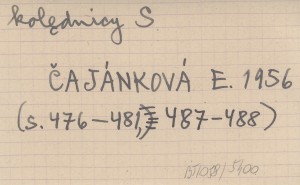 kolędnicy S.
ČAJÁNKOVÁ E. 1956
(s. 476-481, 487-488)